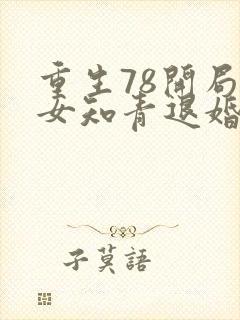 重生78開局
女知青退婚
子莫語